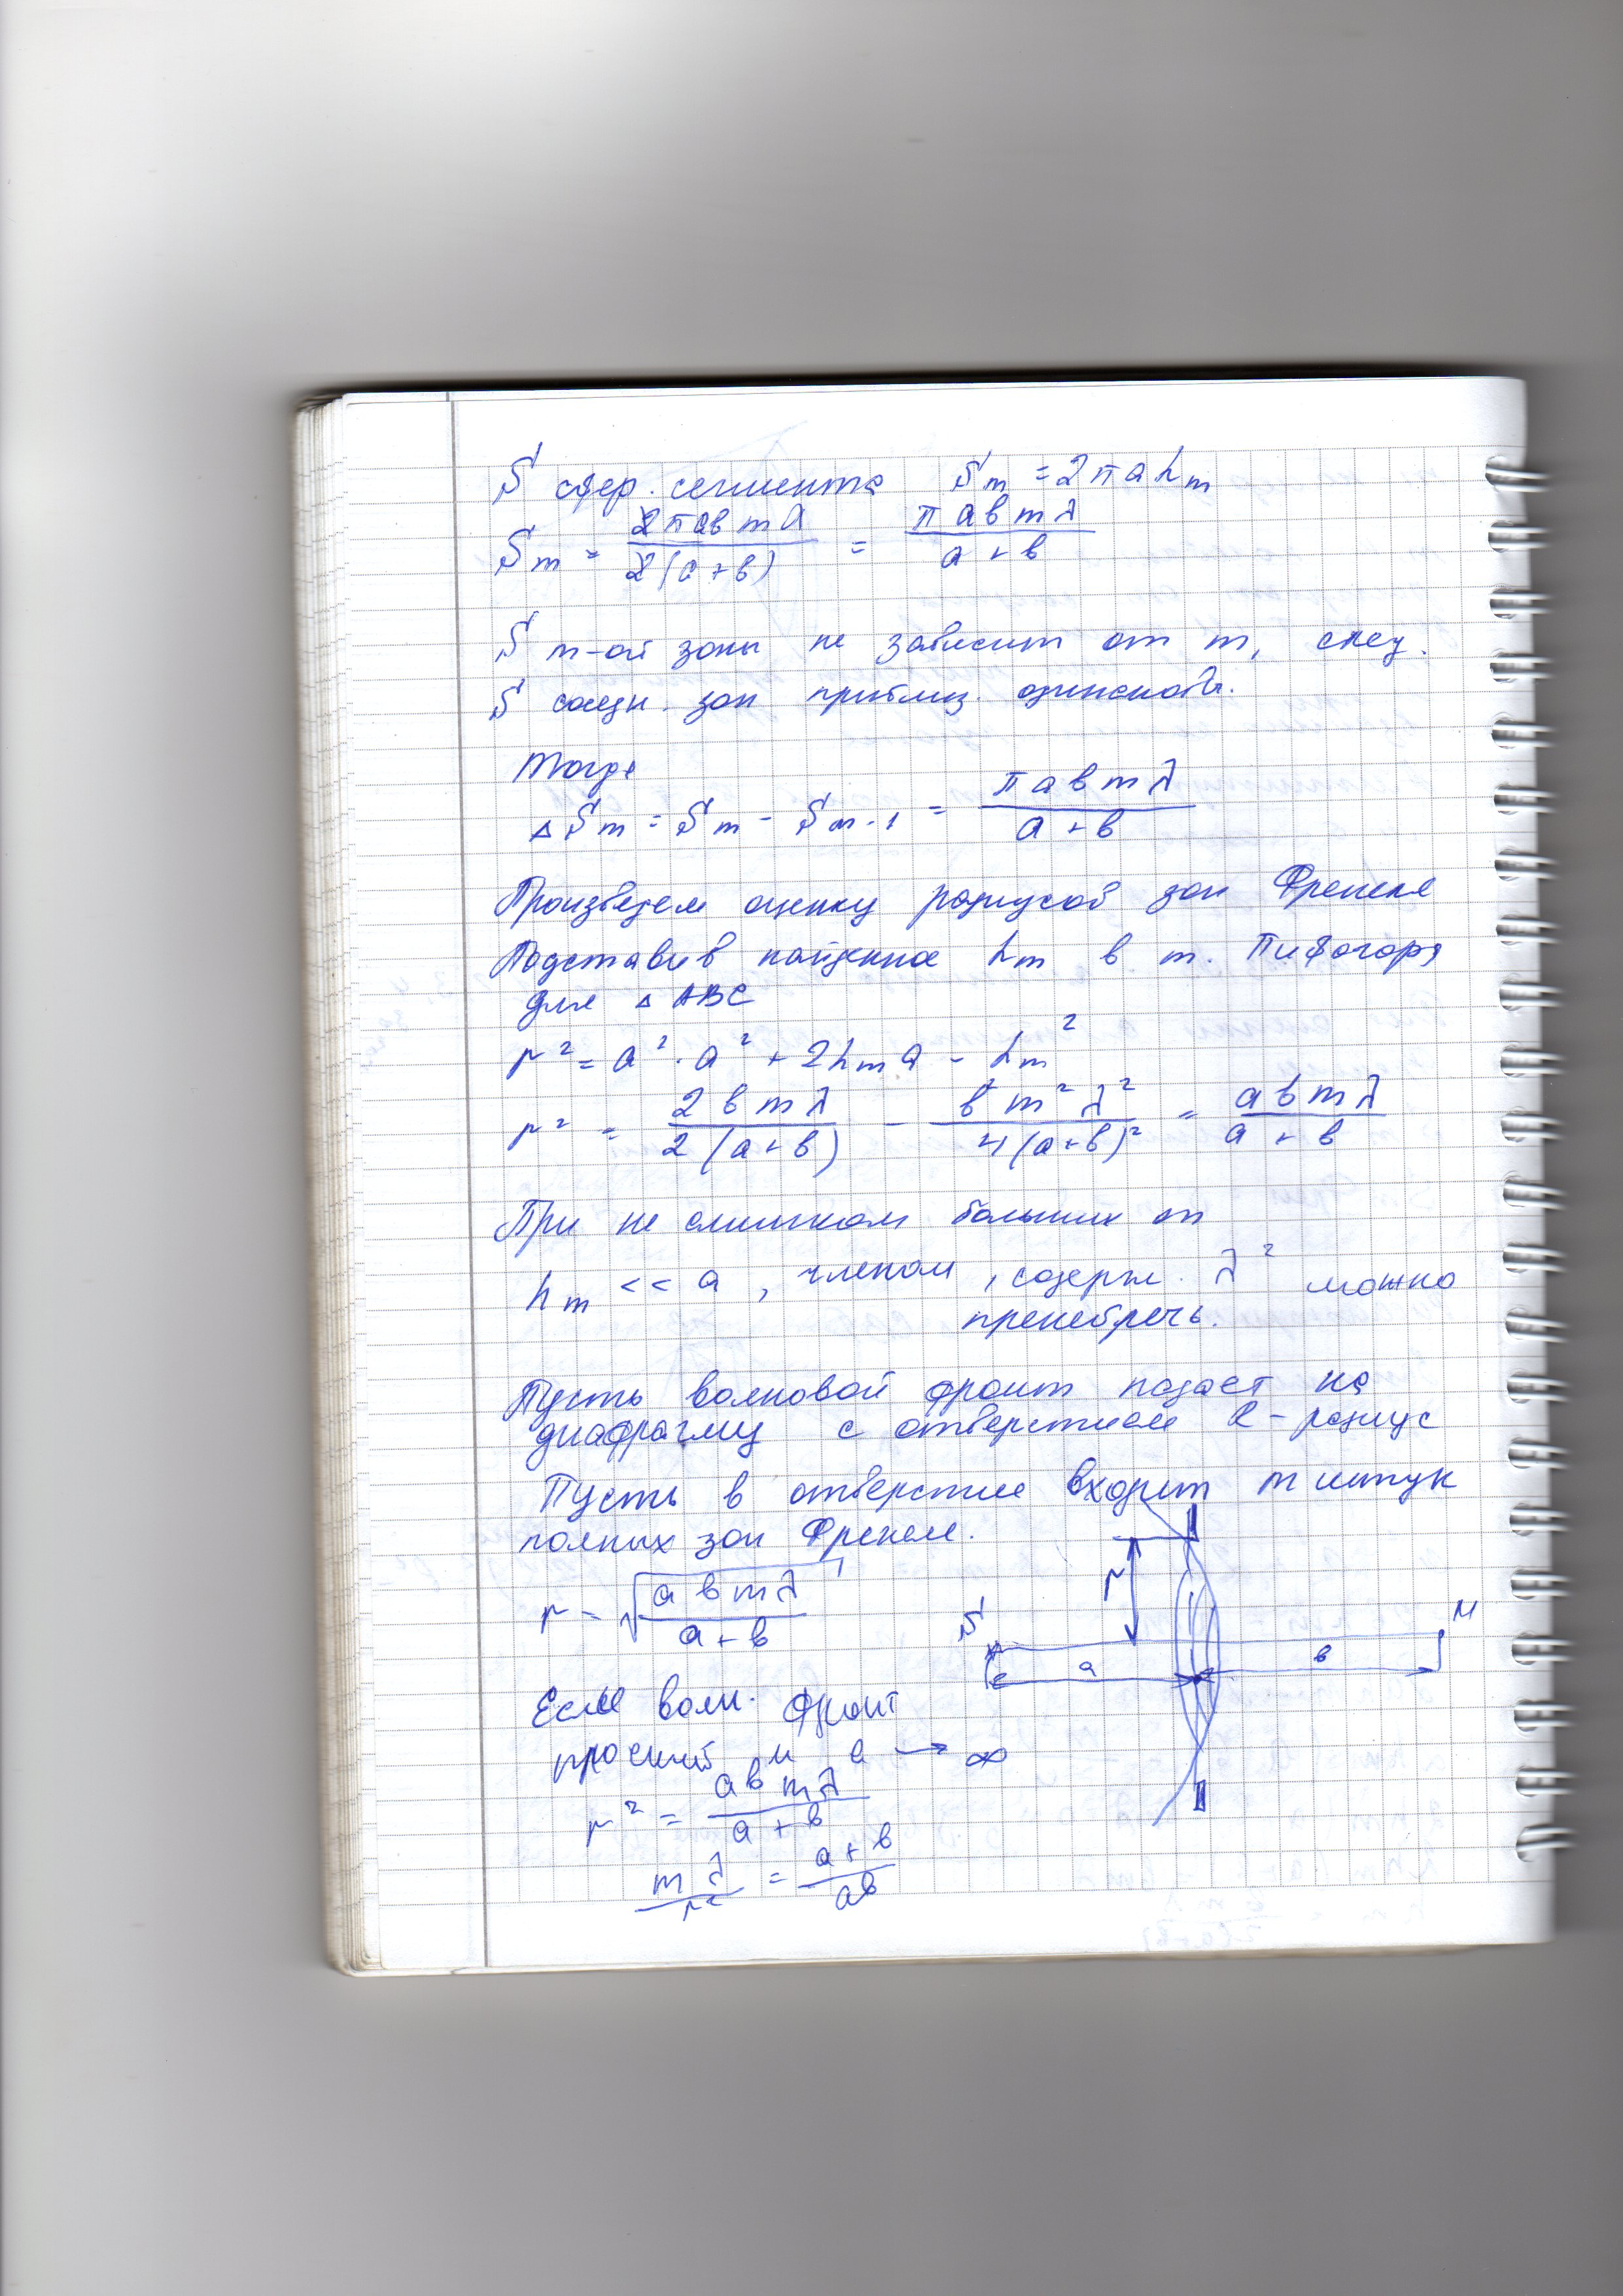 S сфер. сегмента Sm = 2πahm
Sm = 2πавmλ / 2(a+в) = πавmλ / a+в
S m-ой зоны не зависит от m, след.
S соедн. зон приблиз. одинаковы.
Тогда
△Sm = Sm - Sm-1 = πавmλ / a+в
Произведем оценку радиусов зон Френеля
Подставив найденное hm в т. Пифагора
для △ ABC
r² = a² - a² + 2hma - hm²
r² = 2вmλ / 2(a+в) - в²m²λ² / 4(a+в)² = aвmλ / a+в
При не слишком больших m
hm << a, членом, содерж. λ² можно
пренебречь.
Пусть волновой фронт падает на
диафрагму с отверстием R - радиус
Пусть в отверстие входит m штук
полных зон Френеля.
r = √aвmλ / a+в
S r a в M
Если волн. фронт
плоский и a → ∞
r² = aвmλ / a+в
mλ / r² = a+в / aв